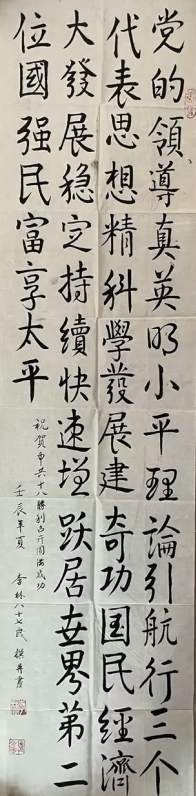 党的領導真英明小平理論引航行三个
代表思想精科學發展建奇功国民經濟
大發展稳定持續快速增跃居世界第二
位國强民富享太平
祝賀中共十八勝利召开圆满成功
壬辰年夏 李林八十七岁 撰并書